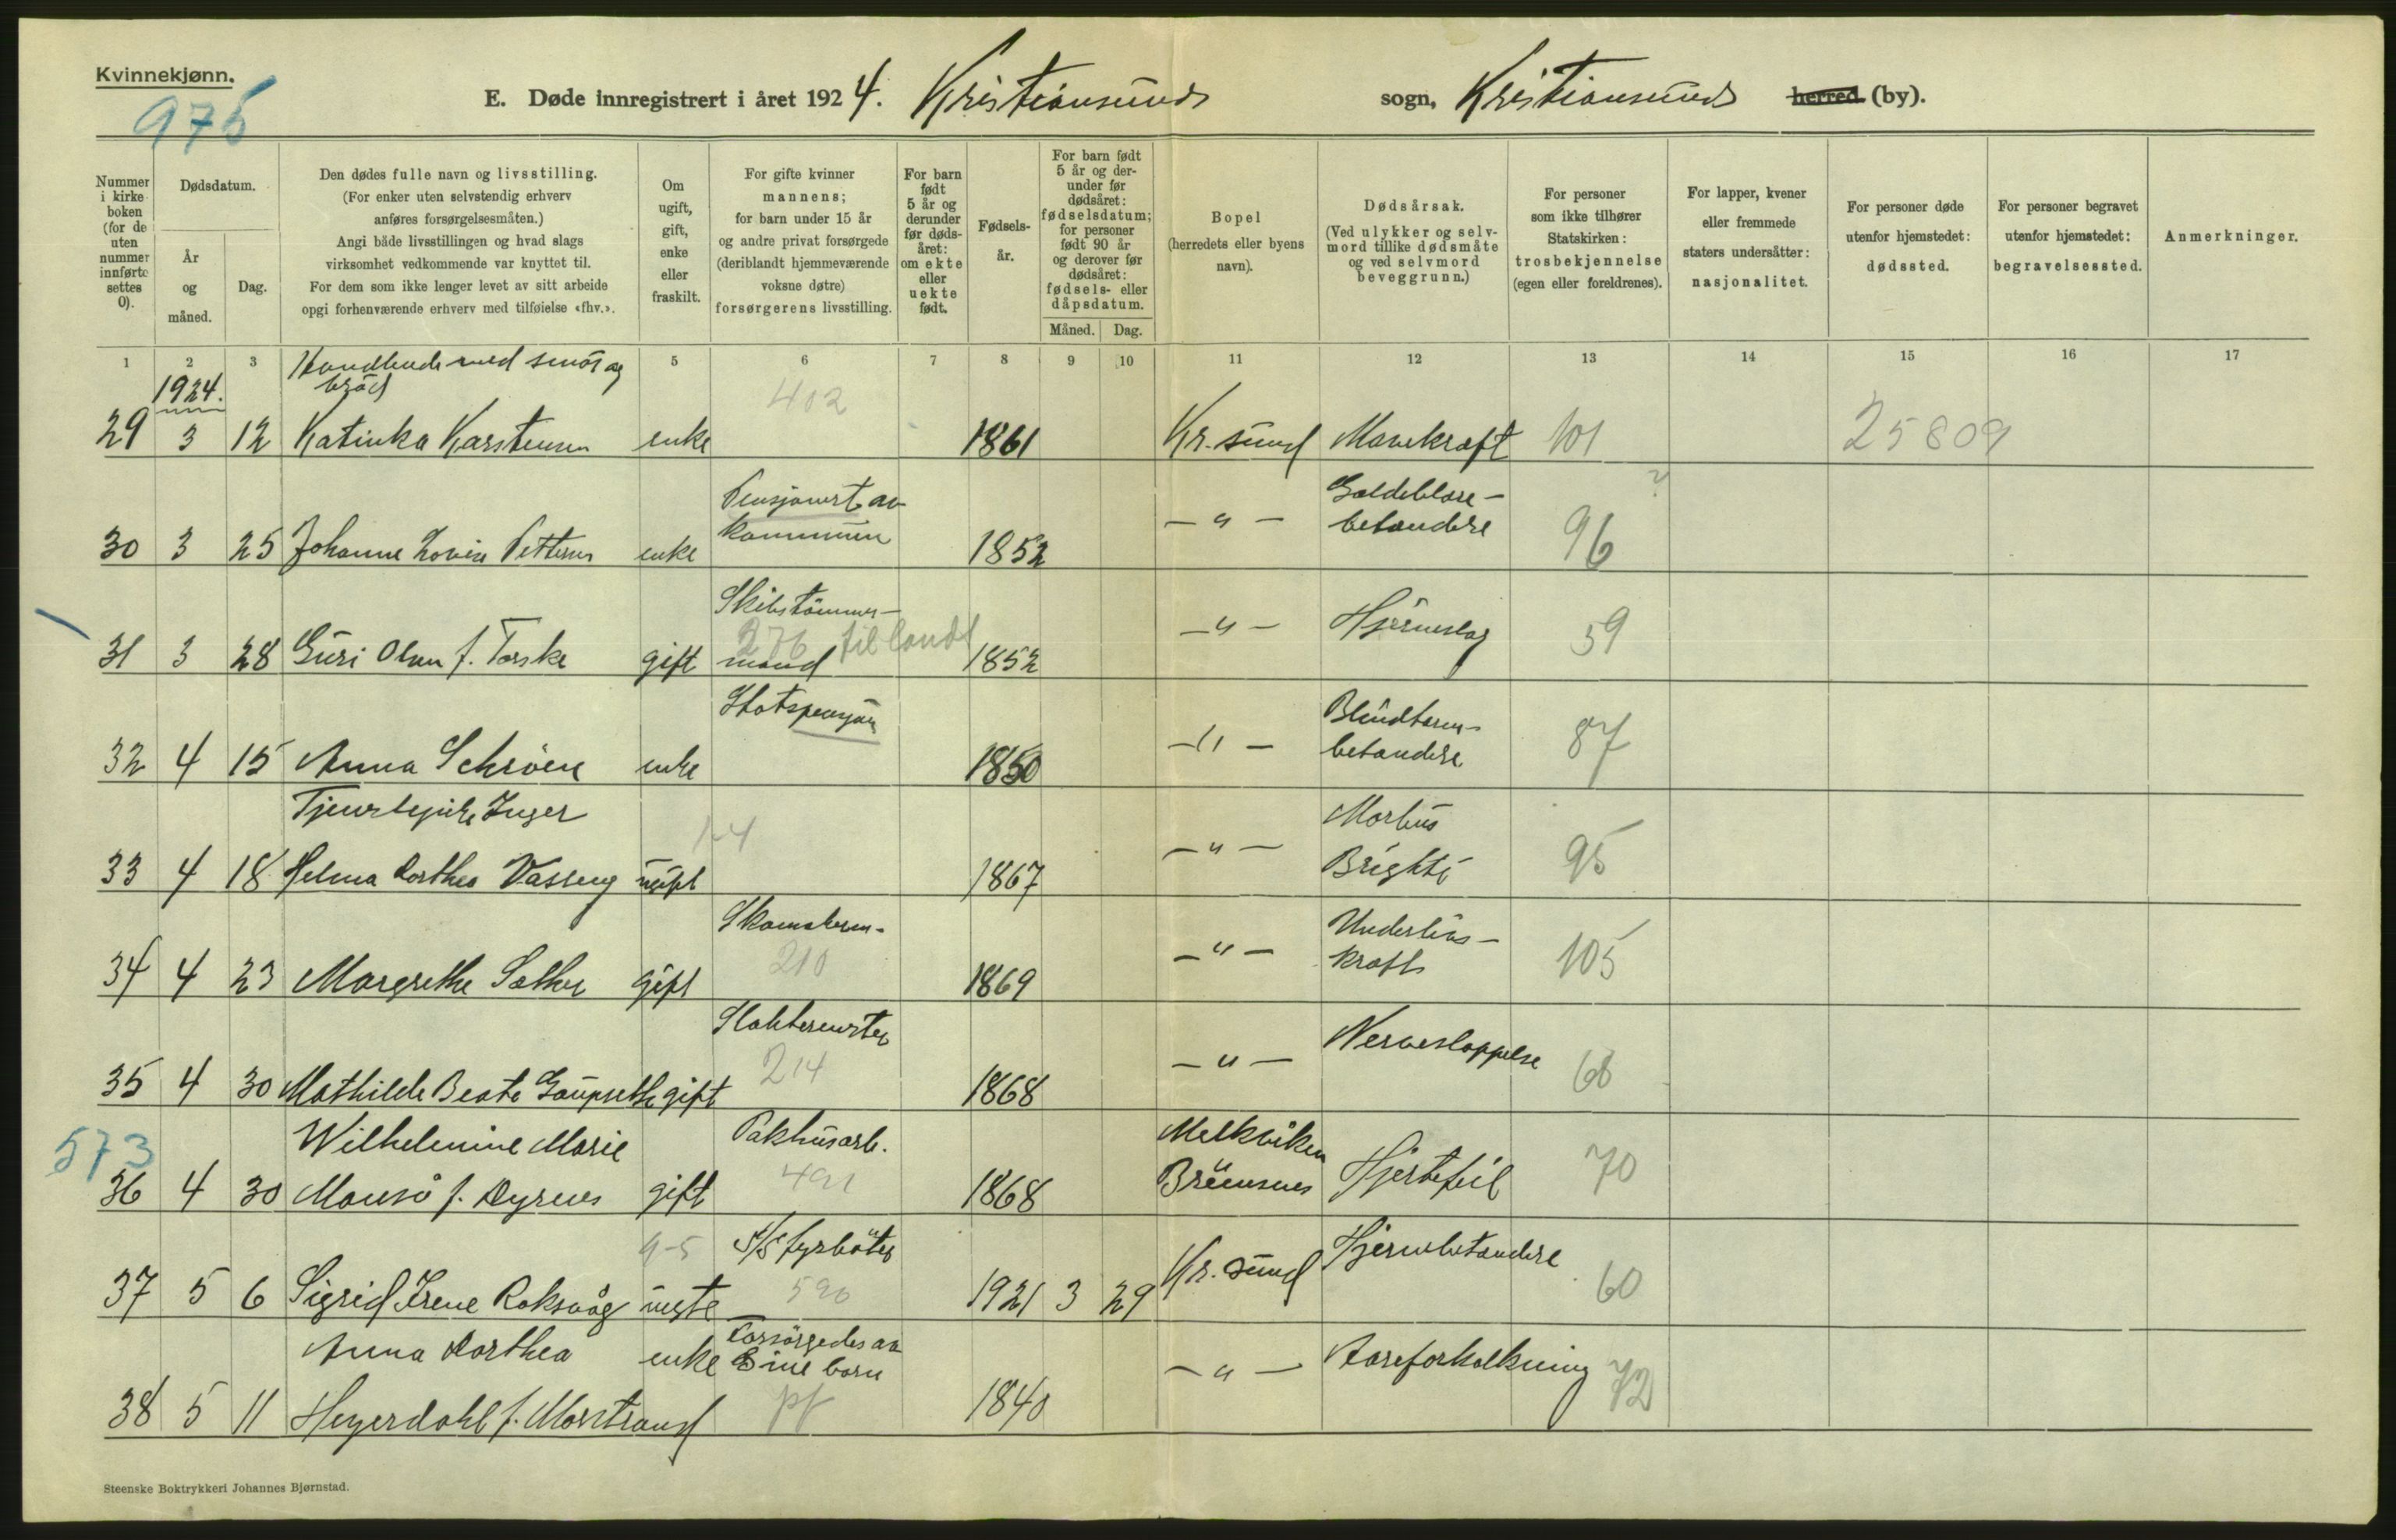 Kvinnekjønn.
975
E. Døde innregistrert i året 1924. Kristiansunds sogn, Kristiansunds herred (by).
Nummer i kirkeboken (for de uten nummer innførte settes 0).
Dødsdatum.
År og måned.
Dag.
Den dødes fulle navn og livsstilling.
(For enker uten selvstendig erhverv
anføres forsørgelsesmåten.)
Angi både livsstillingen og hvad slags
virksomhet vedkommende var knyttet til.
For dem som ikke lenger levet av sitt arbeide
opgi forhenværende erhverv med tilføielse «fhv.».
Om ugift, gift, enke eller fraskilt.
For gifte kvinner
mannens;
for barn under 15 år
og andre privat forsørgede
(deriblandt hjemmeværende
voksne døtre)
forsørgerens livsstilling.
For barn født 5 år og derunder før dødsåret: om ekte eller uekte født.
Fødselsår.
For barn født 5 år og derunder før dødsåret: fødselsdatum; for personer født 90 år og derover før dødsåret: fødsels- eller dåpsdatum.
Måned. Dag.
Bopel
(herredets eller byens
navn).
Dødsårsak.
(Ved ulykker og selvmord tillike dødsmåte
og ved selvmord
beveggrunn.)
For personer
som ikke tilhører
Statskirken:
trosbekjennelse
(egen eller foreldrenes).
For lapper, kvener
eller fremmede
staters undersåtter:
nasjonalitet.
For personer døde
utenfor hjemstedet:
dødssted.
For personer begravet
utenfor hjemstedet:
begravelsessted.
Anmerkninger.
1 2 3 5 6 7 8 9 10 11 12 13 14 15 16 17
1924. Handlende med smör og bröd 402
29 3 12 Katinka Karstensen enke 1861 Kr.sund Mavekræft 101 25809
Pensjonert av kommunen Galdeblære- ?
30 3 25 Johanne Lovise Pettersen enke 1852 -"- betændelse 96
Skibstömmer- 276 til lands
31 3 28 Guri Olsen f. Torske gift mand 1852 -"- Hjerneslag 59
Statspensjon Blindtarm-
32 4 15 Anna Schröen enke 1850 -"- betændelse 87
Tjenestepike Inger 1-4 Morbus
33 4 18 Helma Dorthea Vasseng ugift 1867 -"- Brighti 95
Skomakerm. Underlivs-
34 4 23 Margrethe Sæther gift 210 1869 -"- kræft 105
Slaktermester
35 4 30 Mathilde Beate Gaupseth gift 214 1868 -"- Nerveslappelse 68
573 Wilhelmine Marie Pakhusarb. Melkviken
36 4 30 Monsö f. Dyrnes gift 491 1868 Bremsnes Hjertefeil 70
4-5 S/S fyrböter
37 5 6 Sigrid Irene Roksvåg uegte 590 1921 3 29 Kr.sund Hjernebetændelse 60
Anna Dorthea enke Forsörgedes av sine barn
38 5 11 Heyerdahl f. Morstrand pf 1840 -"- Aareforkalkning 72
Steenske Boktrykkeri Johannes Bjørnstad.